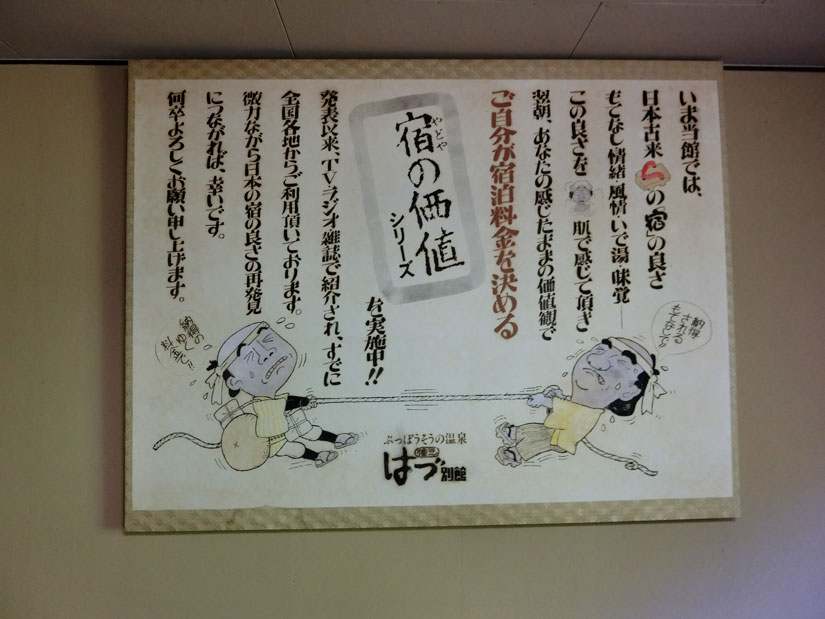 いま当館では、
日本古来の「宿」の良さ
もてなし・情緒・風情・いで湯・味覚――
この良さを 肌で感じて頂き
翌朝、あなたの感じたままの価値観で
ご自分が宿泊料金を決める
やどや
宿の価値
シリーズ
を実施中!!
発表以来、TVラジオ雑誌で紹介され、すでに
全国各地からご利用頂いております。
微力ながら日本の宿の良さの再発見
につながれば、幸いです。
何卒よろしくお願い申し上げます。
納得の
ゆく
料金で!!
納得
される
もてなしで!!
ぶっぽうそうの温泉
はづ別館